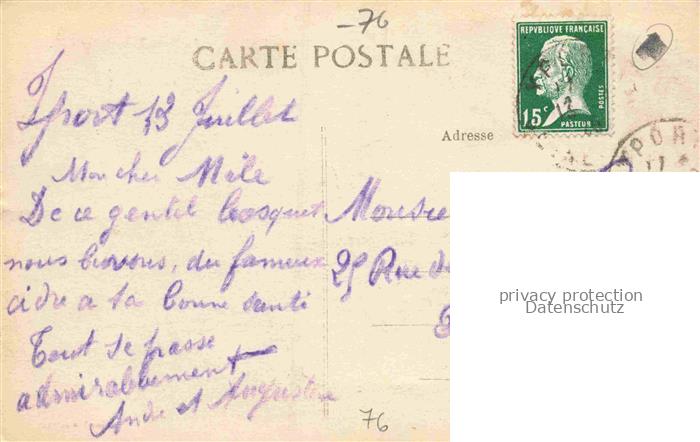 -76
CARTE POSTALE
REPUBLIQUE FRANÇAISE
15c
POSTES
PASTEUR
Yport 13 Juillet
Adresse
YPOR
Mon cher Mile
De ce gentil bosquet
nous buvons, du fameux
cidre a ta bonne santé
Tout se passe
admirablement
André et Augustine
Monsie
25 Rue de
privacy protection
Datenschutz
76